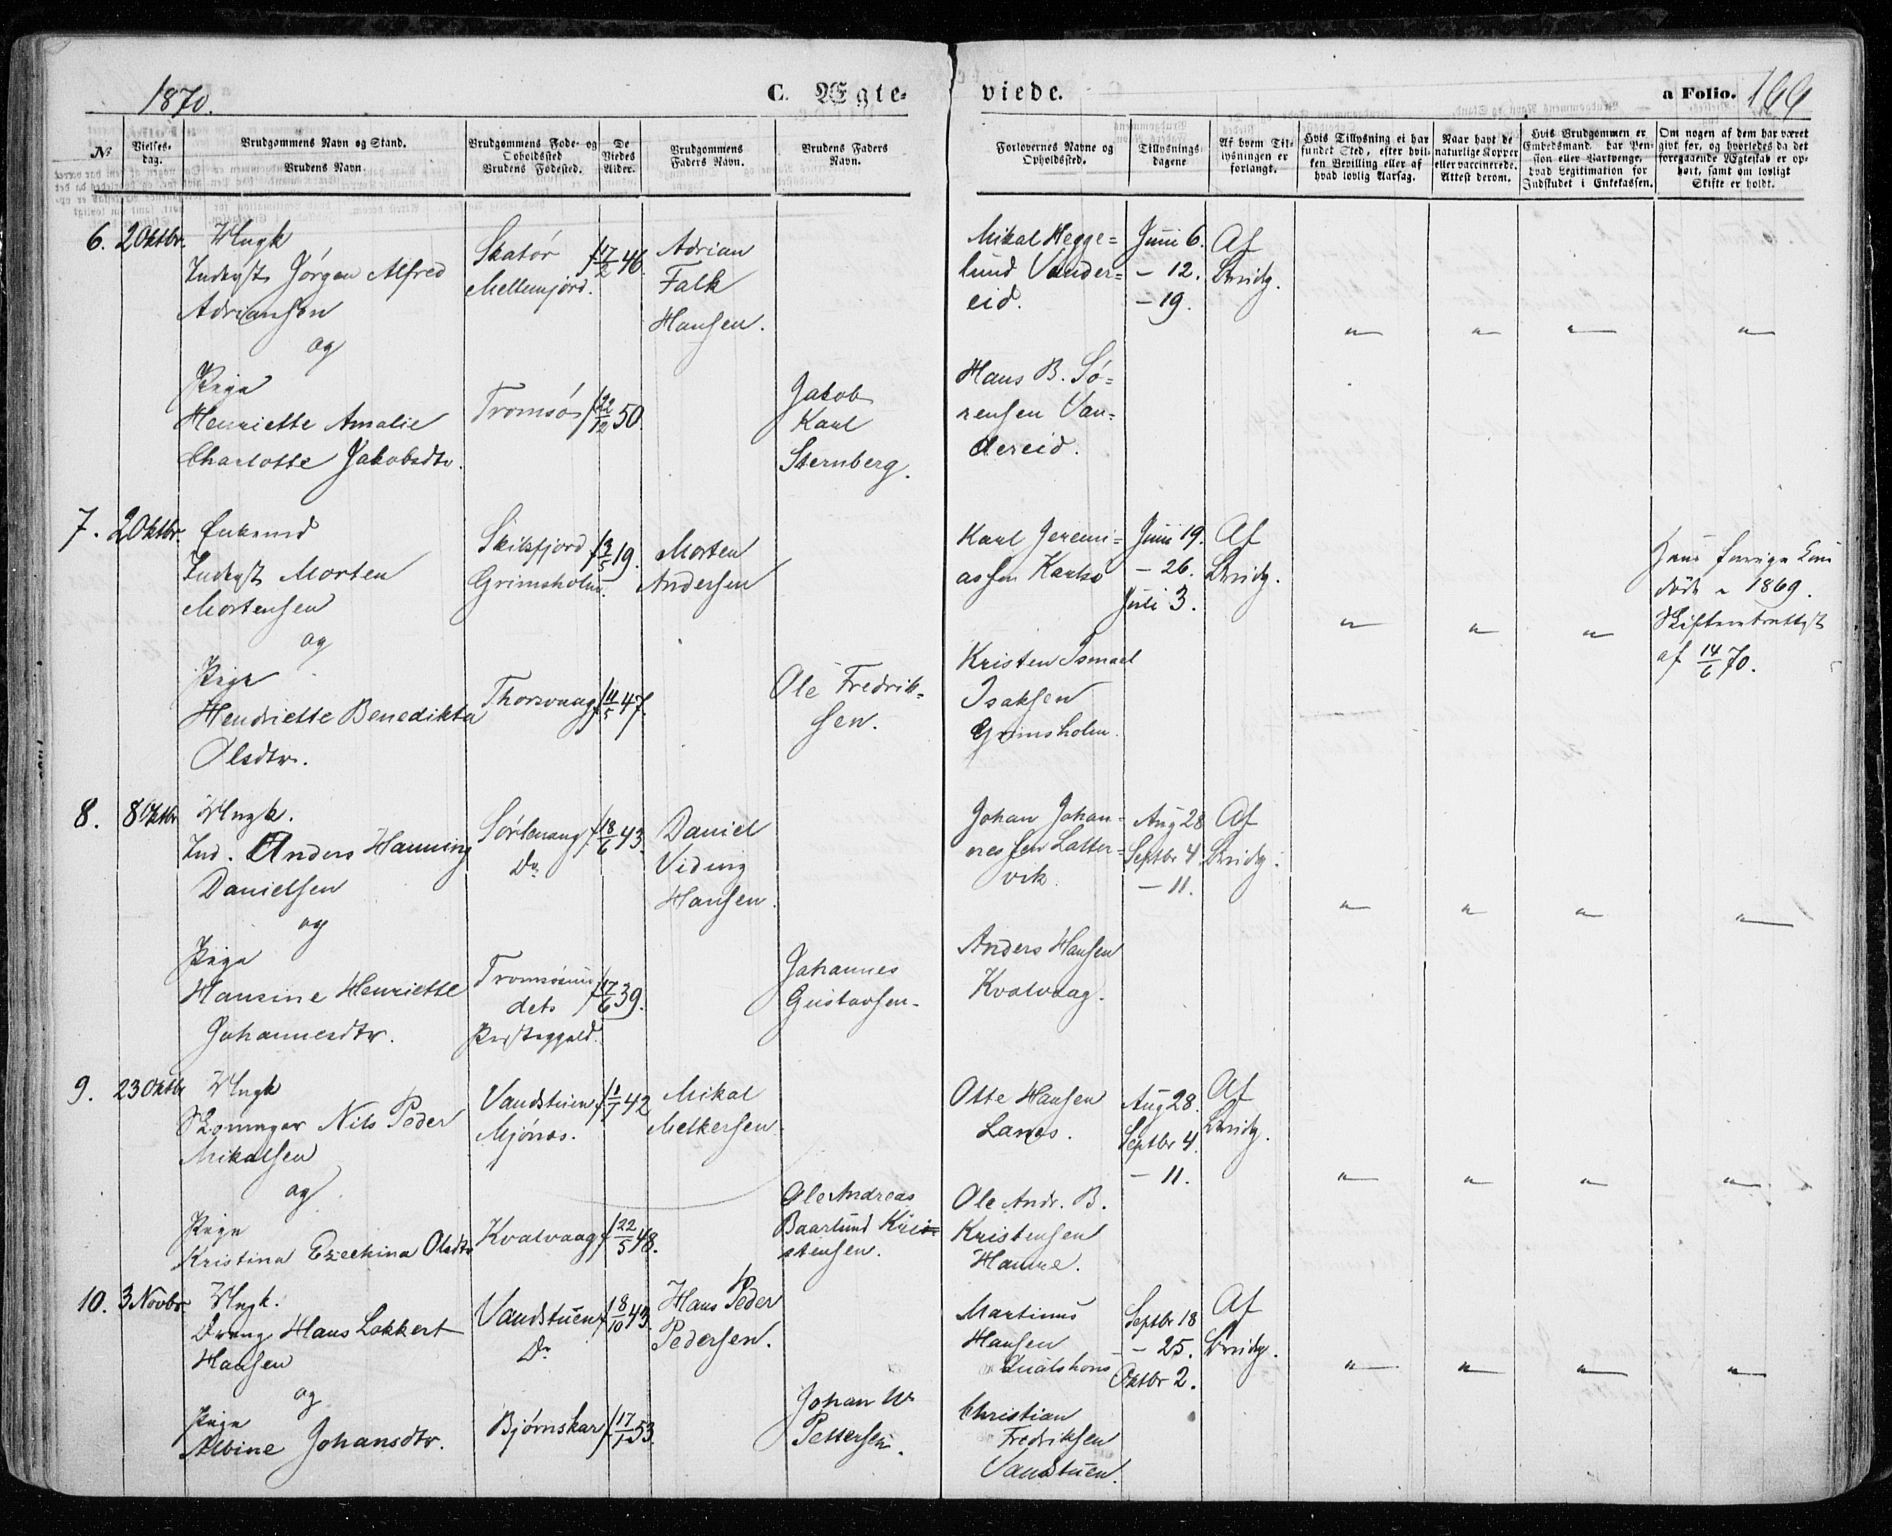 1870.
C. Ægte-
viede.
a Folio. 166
No.
Vielses-
dag.
Brudgommens Navn og Stand.
Brudens Navn.
Brudgommens Føde- og
Opholdssted
Brudens Fødested.
De
Viedes
Alder.
Brudgommens
Faders Navn.
Brudens Faders
Navn.
Forlovernes Navne og
Opholdssted.
Tillysnings-
dagene
Af hvem Til-
lysningen er
forlangt.
Hvis Tillysning ei har
fundet Sted, efter hvil-
ken Bevilling eller af
hvad lovlig Aarsag.
Naar havt de
naturlige Kopper
eller vaccinerede.
Attest derom.
Hvis Brudgommen er
Embedsmand, har Pen-
sion eller Vartpenge,
hvad Legitimation for
Indskudet i Enkekassen.
Om nogen af dem har været
givt før, og hvorledes da det
foregaaende Ægteskab er op-
hørt, samt om lovligt
Skifte er holdt.
6. 2 Oktbr. Ungk
Inderst Jørgen Alfred
Adriansen
og
Pige
Henriette Amalie
Charlotte Jakobsdtr.
Skatør
Mellemjord.
Tromsø
f 17/2 46.
f 22/12 50.
Adrian
Falk
Hansen.
Jakob
Karl
Sternberg.
Mikal Hegge=
lund Vander=
eid.
Hans B. Sø=
rensen Van=
dereid.
Juni 6.
- 12.
- 19.
Af
Brudg.
" " " "
7. 2 Oktbr. Enkemd
Inderst Morten
Mortensen
og
Pige
Hendriette Benedikta
Olsdtr.
Skilsfjord
Grimsholm.
Thorsvaag
f 3/5 19.
f 11/5 47.
Morten
Andersen
Ole Fredrik=
sen.
Karl Jeremi=
assen Karlsø
Kristen Ismael
Isaksen
Grimsholm.
Juni 19.
- 26.
Juli 3.
Af
Brudg.
" " "
Hans forrige Kone
døde 1869.
af 14/6 70.
8. 8 Oktbr Ungk.
Ind. Anders Hanning
Danielsen
og
Pige
Hansine Henriette
Johannesdtr.
Do
Tromsøsun
dets
Præstegjeld.
f 18/6 43.
f 17/6 39.
Daniel
Viding
Hansen.
Johannes
Gustavsen.
Johan Johan=
nessen Latter=
vik.
Anders Hansen
Kvalvaag.
Aug 28
Septbr 4
- 11.
Af
Brudg.
" " " "
9. 23 Oktbr Ungk
Skomager Nils Peder
Mikalsen
og
Pige
Kristina Ezechina Olsdtr
Vandstuen
Mjønes.
Kvalvaag
f 1/1 42
f 22/5 48.
Mikal
Melkersen
Ole Andreas
Baarlund Kri=
stensen.
Otte Hansen
Lanes.
Ole Andr. B.
Kristensen
Hamre.
Aug 28.
Septbr 4
- 11.
Af
Brudg.
" " " "
10. 3 Novbr. Ungk.
Dreng Hans Lokkert
Hansen
og
Pige
Albine Johansdtr.
Vandstuen
Do
Bjørnskar
f 8/10 43.
f 17/1 53.
Hans Peder
Pedersen.
Johan W
Pettersen.
Martinus
Hansen
Christian
Fredriksen
Vandstuen.
Septbr 18
- 25.
Oktbr 2.
Af
Brudg.
" " " "